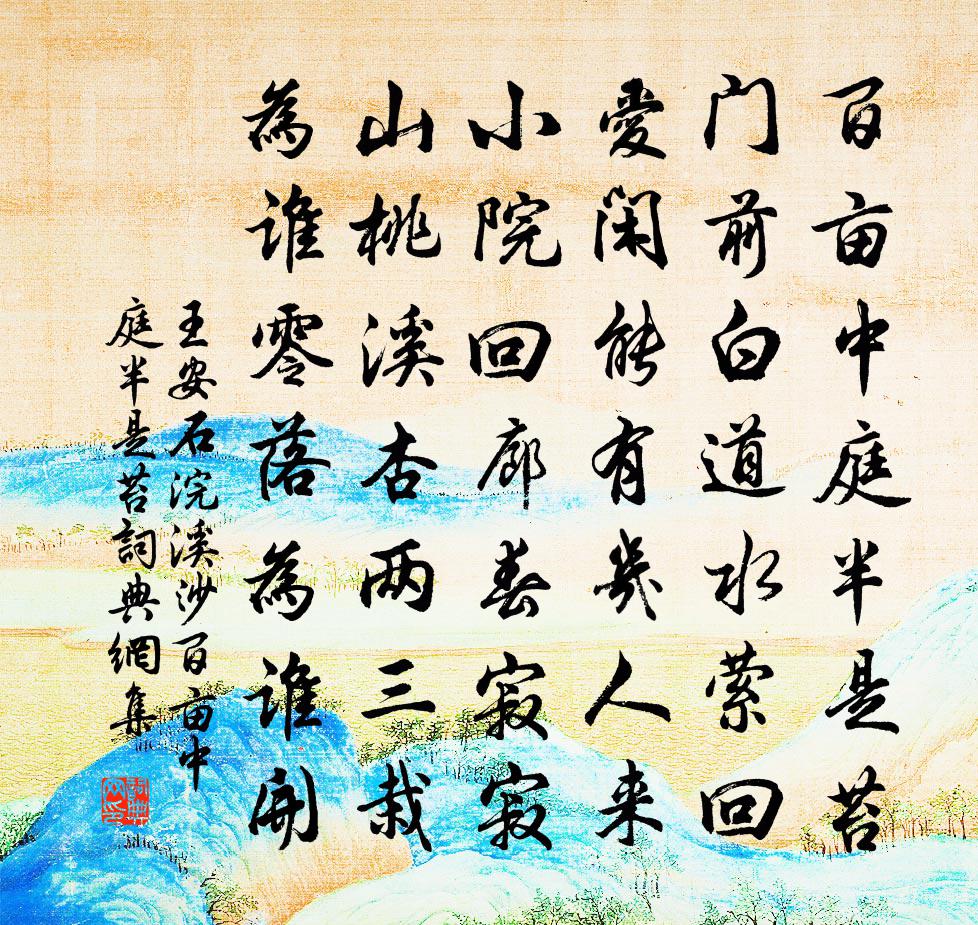 百亩中庭半是苔
门前白道水萦回
爱闲能有几人来
小院回廊春寂寂
山桃溪杏两三栽
為谁零落為谁開
王安石浣溪沙百亩中
庭半是苔詞典網集